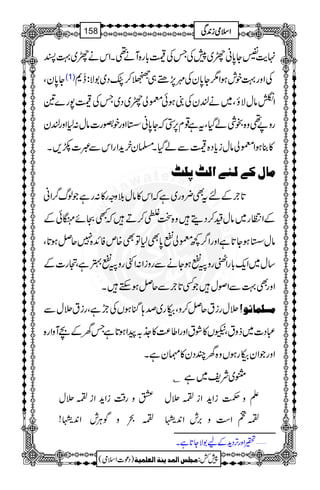 158 اسلامی زندگی
نہایت نفیس جاپانی چھڑی پیش کی جس کی قیمت بارہ آنے تھی۔ اس نے چھڑی بہت پسند
کی اور بہت خوش ہوا مگر جاپان کی مہر پڑھتے ہی جھنجھلا کر پٹک دی بولا: ڈَیم (1) جاپان،
انگلش مال لاؤ، میں نے لندن کی بنی ہوئی معمولی چھڑی دی جس کی قیمت پورے تین
روپے تھی وہ بخوشی لے گیا، یہ ہے قوم پرستی کہ جاپانی کا سستا اور خوبصورت مال نہ لیا اور لندن
کا بنا ہوا معمولی مال زیادہ قیمت سے لے گیا۔ مسلمان خریدار اس سے عبرت پکڑیں۔
مال کے لئے الٹ پلٹ
تاجر کے لئے یہ بھی ضروری ہے کہ اس کا مال بلا وجہ رکا نہ رہے جو لوگ گرانی
کے انتظار میں مال قید کر دیتے ہیں وہ سخت غلطی کرتے ہیں کہ کبھی بجائے مہنگائی کے
مال سستا ہو جاتا ہے اور اگر کچھ معمولی نفع پا بھی لیا تو بھی خاص فائدہ نہیں حاصل ہوتا،
سال میں ایک بار اٹھنی روپیہ نفع ہو جانے سے روزانہ اکنی روپیہ نفع بہتر ہے، تجارت کے
اور بھی بہت سے اصول ہیں جو کسی تاجر سے حاصل ہو سکتے ہیں۔
مسلمانو! حلال رزق حاصل کرو، بیکاری صدہا گناہوں کی جڑ ہے، رزقِ حلال سے
عبادت میں ذوق، نیکیوں کا شوق اور اطاعت کا جذبہ پیدا ہوتا ہے جس گھر کے بچے آوارہ
اور جوان بیکار ہوں وہ گھر چند دن کا مہمان ہے۔
مثنوی شریف میں ہے
علم و حکمت زاید از لقمہ حلال عشق و رقت زاید از لقمہ حلال
لقمہ تخم است و برش اندیشہا لقمہ بحر و گوہرش اندیشہا!
تحقیر اور تردید کے لیے بولا جاتا ہے۔
پیش کش: مجلس المدینۃ العلمیۃ (دعوت اسلامی)